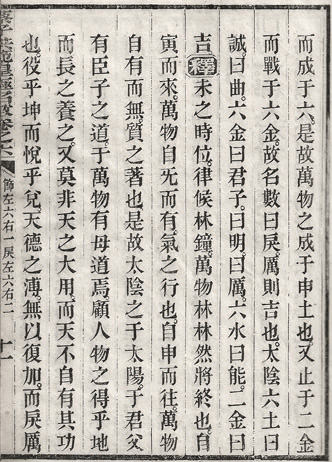 而成于六。是故萬物之成于申土也。又止于二金
而戰于六金。故名數曰戾厲則吉也。太陰六土曰
誠曰曲。六金曰君子曰明曰厲。六水曰能。二金曰
吉。釋未之時位。律候林鐘。萬物林林然將終也。自
寅而來萬物自无而有。氣之行也。自申而往。萬物
自有而無。質之著也。是故太陰之于太陽。于君父
有臣子之道。于萬物有母道焉。顧人物之得乎地
而長之養之。又莫非天之大用。而天不自有其功
也。役乎坤而悅乎兌。天德之溥。無以復加。而戾厲
卷之六 飾左六右一戾左六右二 十一